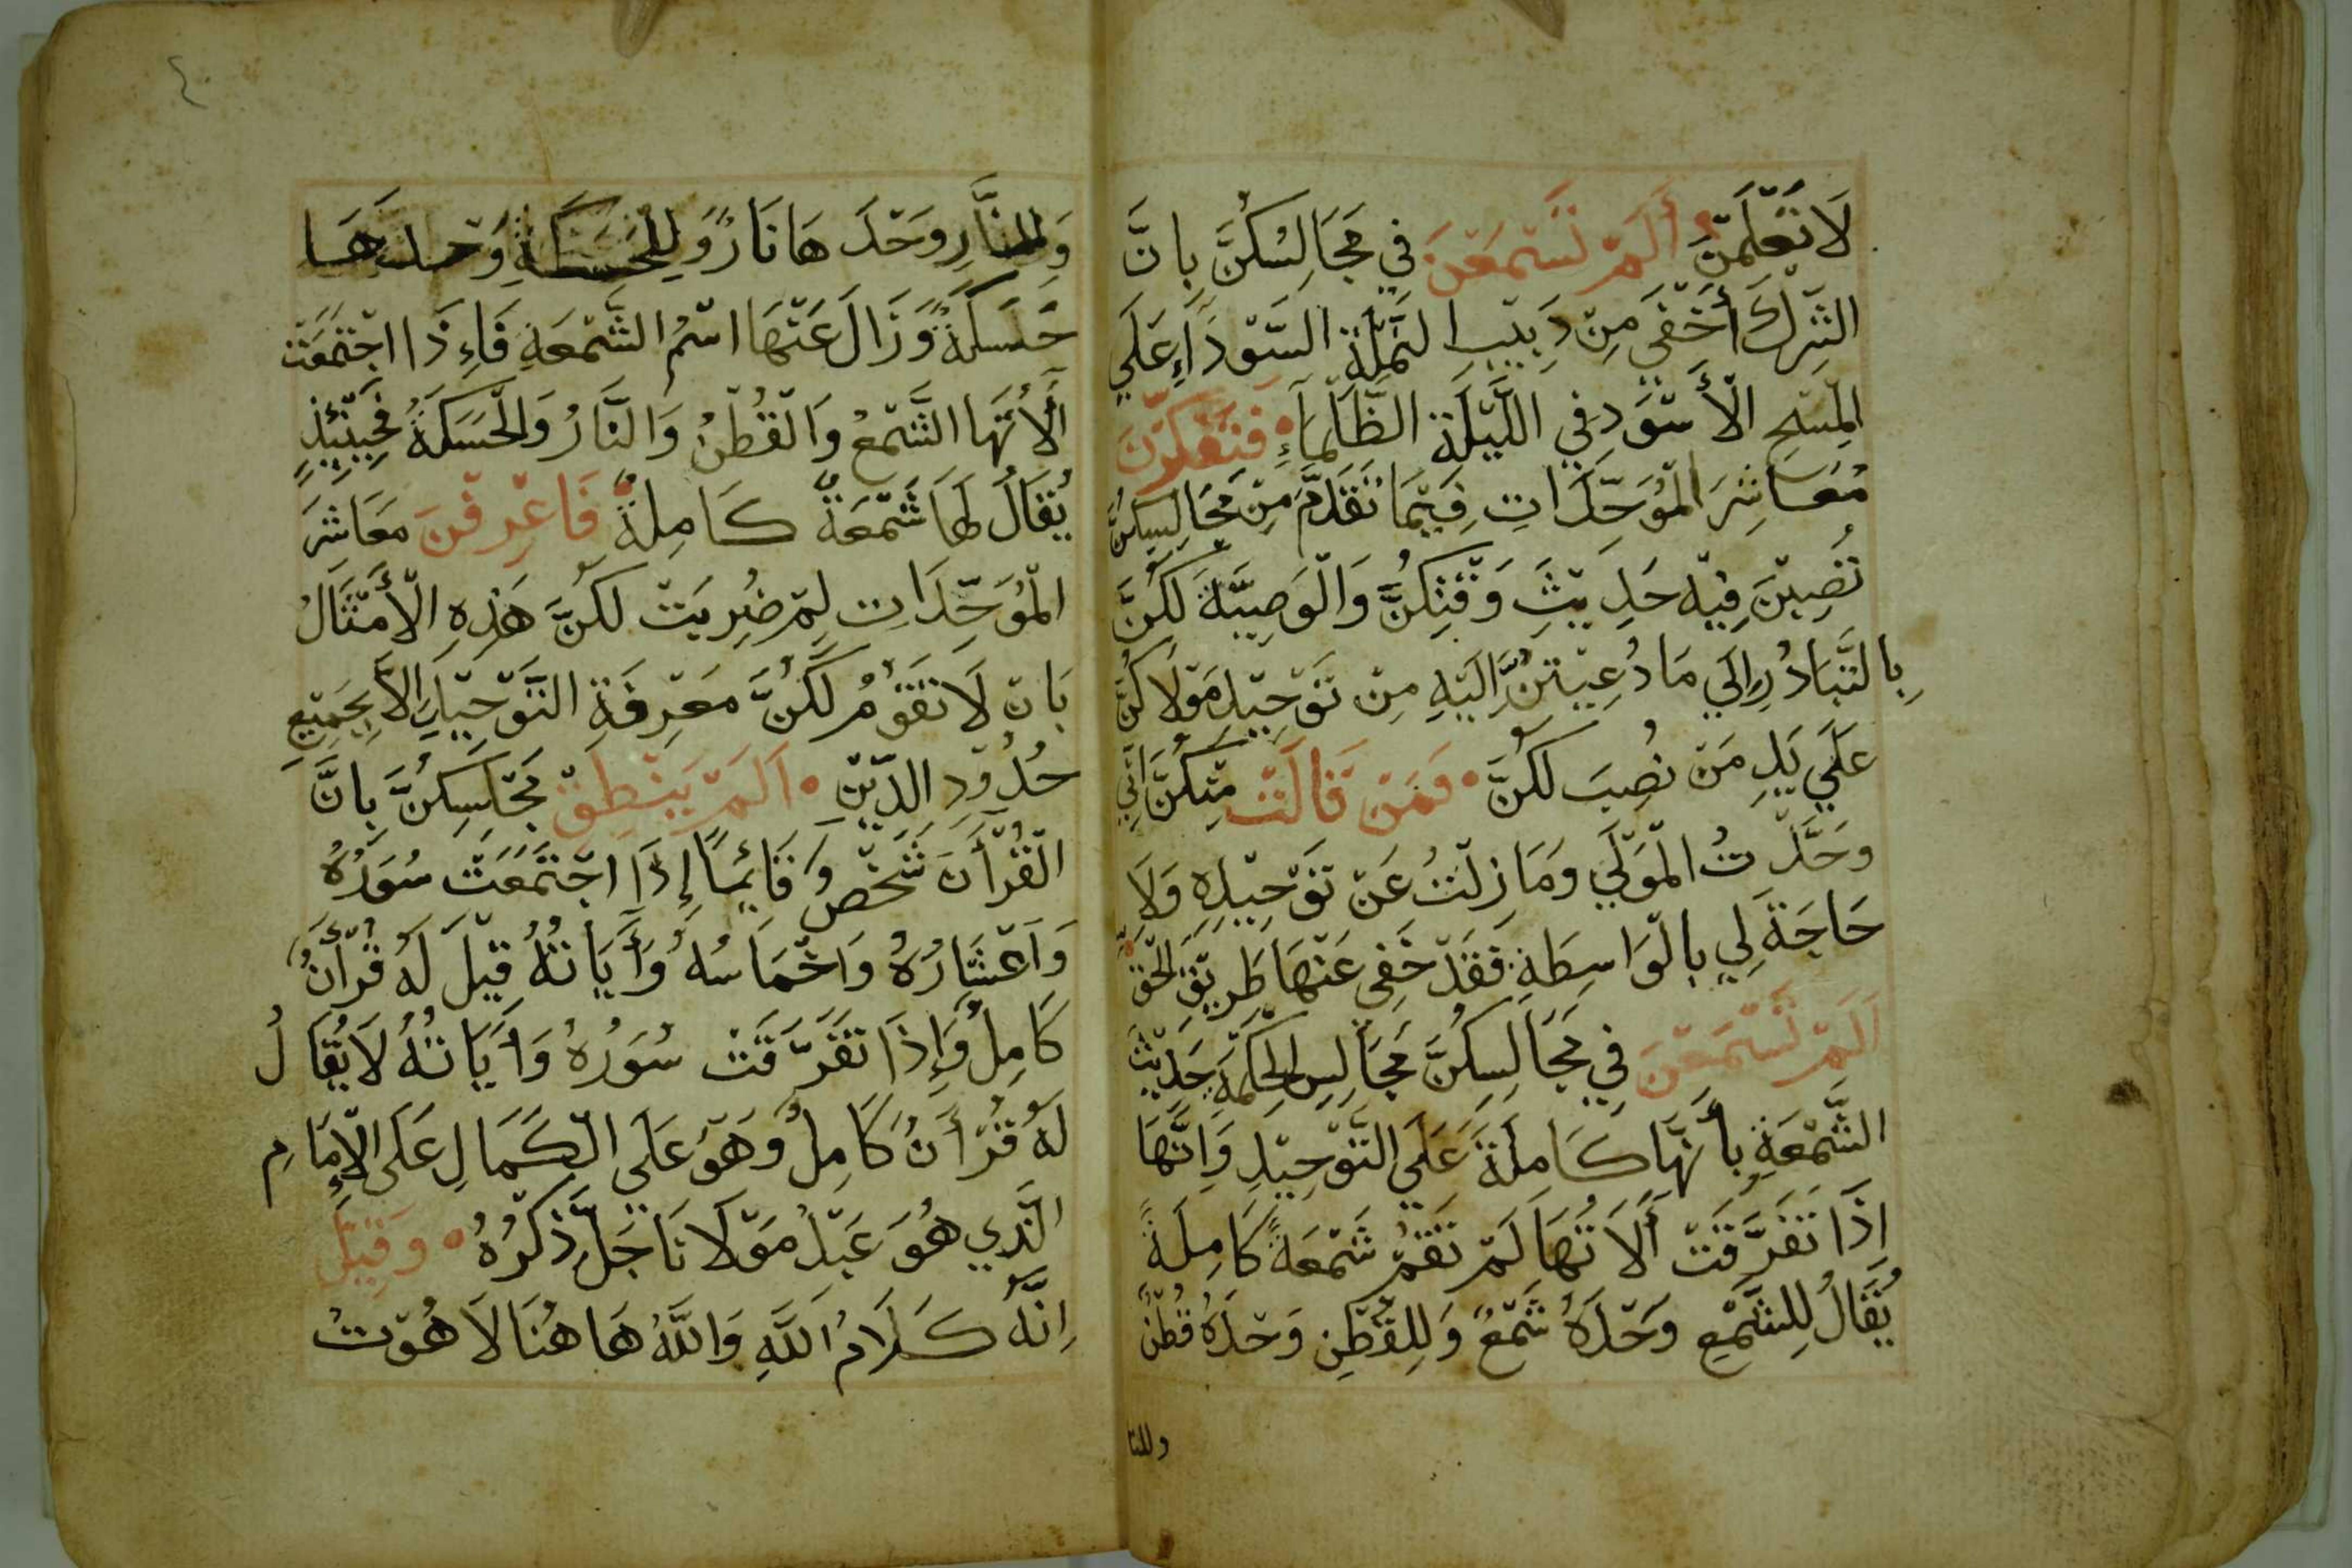 لَا تَعْلَمْنَ أَلَمْ تَسْتَمِعْنَ فِي مَجَالِسِكُنَّ بِانَّ
الشِّرْكَ أَخْفَي مِنْ دَبِيْبِ النَّمْلَةِ السَّوْدَآءِ عَلَي
الْمِسْحِ الْأَسْوَدِ فِي اللَّيْلَةِ الظَّلْمَآءِ فَتَفَكَّرْنَ
مَعَاشِرَ الْمُوَحِّدَاتِ فِيْمَا تَقَدَّمَ مِنْ مَجَالِسِكُنَّ
تُصِبْنَ فِيْهِ حَدِيْثَ وَقْتِكُنَّ وَالْوَصِيَّةَ لَكُنَّ
بِالتَّبَادُرِ اِلَي مَا دُعِيْتُنَّ اِلَيْهِ مِنْ تَوْحِيْدِ مَوْلَاكُنَّ
عَلَي يَدِ مَنْ نُصِبَ لَكُنَّ فَمَنْ قَالَتْ مِنْكُنَّ اَنِّي
وَحَّدْتُ الْمَوْلَي وَمَا زِلْتُ عَنْ تَوْحِيْدِهِ وَلَا
حَاجَةَ لِي بِالْوَاسِطَةِ فَقَدْ خَفِي عَنْهَا طَرِيْقَ الْحَقِّ
اَلَمْ تَسْتَمِعْنَ فِي مَجَالِسِكُنَّ مَجَالِسِ الْحِكْمَةِ حَدِيْثَ
الشَّمْعَةِ بِأَنَّهَا كَامِلَةً عَلَي التَّوْحِيْدِ وَاِنَّهَا
اِذَا تَفَرَّقَتْ أَلَاتُهَا لَمْ تَقُمْ شَمْعَةً كَامِلَةً
يُقَالُ لِلشَّمْعِ وَحْدَهُ شَمْعٌ وَلِلْقُطْنِ وَحْدَهُ قُطْنٌ
وللنا
وَلِلنَّارِ وَحْدَهَا نَارٌ وَلِلْحَسَكَةِ وَحْدَهَا
حَسَكَةٌ وَزَالَ عَنْهَا اسْمُ الشَّمْعَةِ فَاِذَا اجْتَمَعَتْ
أَلَاتُهَا الشَّمْعُ وَالْقُطْنُ وَالنَّارُ وَالْحَسَكَةُ فَحِيْنَئِذٍ
يُقَالُ لَهَا شَمْعَةٌ كَامِلَةٌ فَاعْرِفْنَ مَعَاشِرَ
الْمُوَحِّدَاتِ لِمَ ضُرِبَتْ لَكُنَّ هَذِهِ الْأَمْثَالُ
بَانْ لَا تَقُوْمُ لَكُنَّ مَعْرِفَةَ التَّوْحِيْدِ اِلَّا بِجَمِيْعِ
حُدُوْدِ الدِّيْنِ اَلَمْ يَنْطِقْ مَجْلِسِكُنَّ بِانَّ
الْقُرْأَنَ شَخْصٌ قَائِمًا إِذَا اجْتَمَعَتْ سُوَرُهُ
وَاَعْشَارُهُ وَاَخْمَاسُهُ وَأَيَاتُهُ قِيْلَ لَهُ قُرْأَنٌ
كَامِلٌ وَإِذَا تَفَرَّقَتْ سُوَرُهُ وَأَيَاتُهُ لَا يُقَالُ
لَهُ قُرْأَنٌ كَامِلٌ وَهُوَ عَلَي الْكَمَالِ عَلَى الْإِمَامِ
الَّذِي هُوَ عَبْدُ مَوْلَانَا جَلَّ ذِكْرُهُ وَقِيْلَ
اِنَّهُ كَلَامُ اللَّهِ وَاللَّهُ هَاهُنَا لَاهُوْتُ